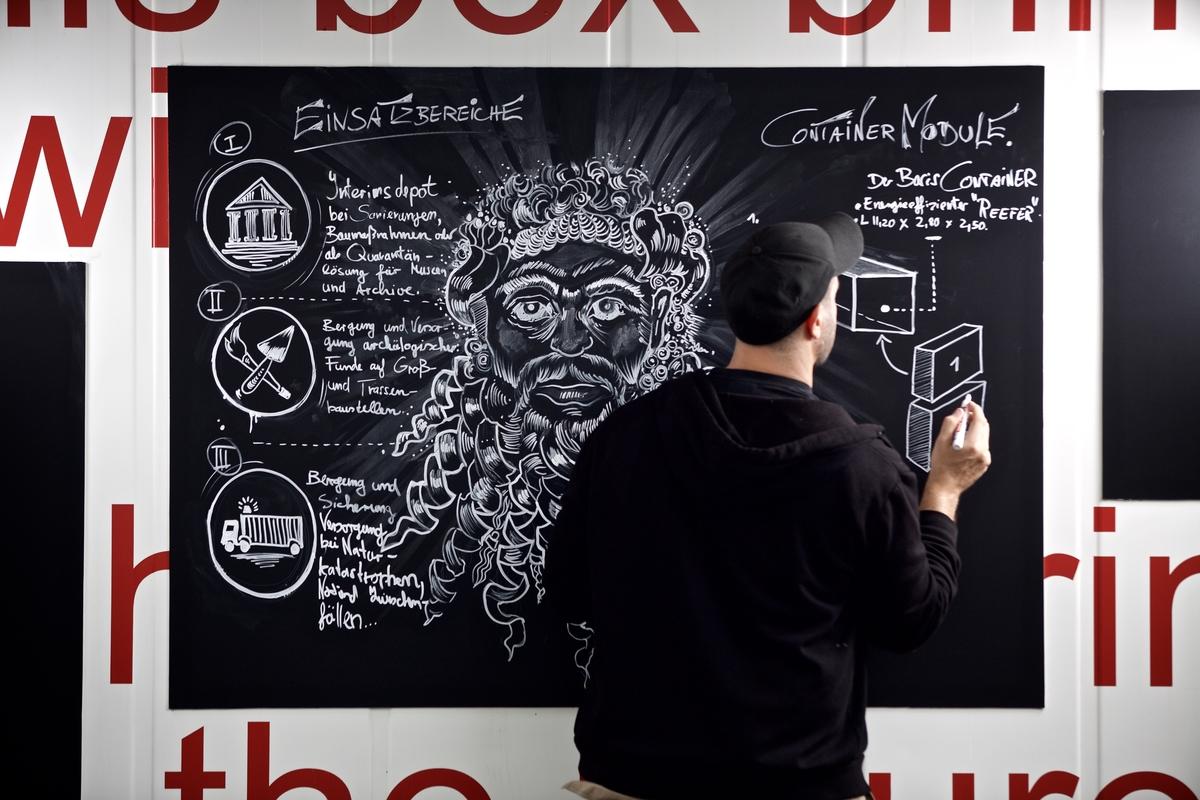 box
wi
EINSATZBEREICHE
I
Interimsdepot
bei Sanierungen,
Baumaßnahmen oder
als Quarantän-
lösung für Museen
und Archive.
II
Bergung und Versor-
gung archäologischer
Funde auf Groß-
und Trassen-
baustellen...
III
Bergung und
Sicherung
Versorgung
bei Natur-
katastrophen,
fällen...
CONTAINER MODULE.
Der Basis CONTAINER
• Energieeffizienter "REEFER".
• L 11,20 x 2,80 x 2,50.
1.
1
h
rin
the
ure